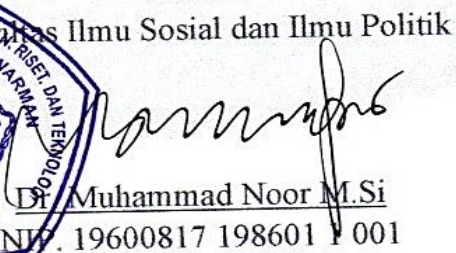 Fakultas Ilmu Sosial dan Ilmu Politik
N, RISET, DAN TEKNOLOG
NARMAN
Dr. Muhammad Noor M.Si
NIP. 19600817 198601 1 001